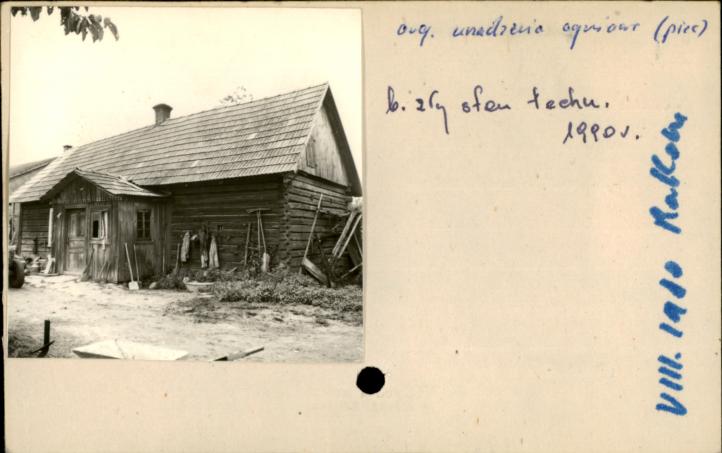 oryg. urządzenia ogniowe (piec)
b. zły stan techn.
1990 r.
VIII. 1980